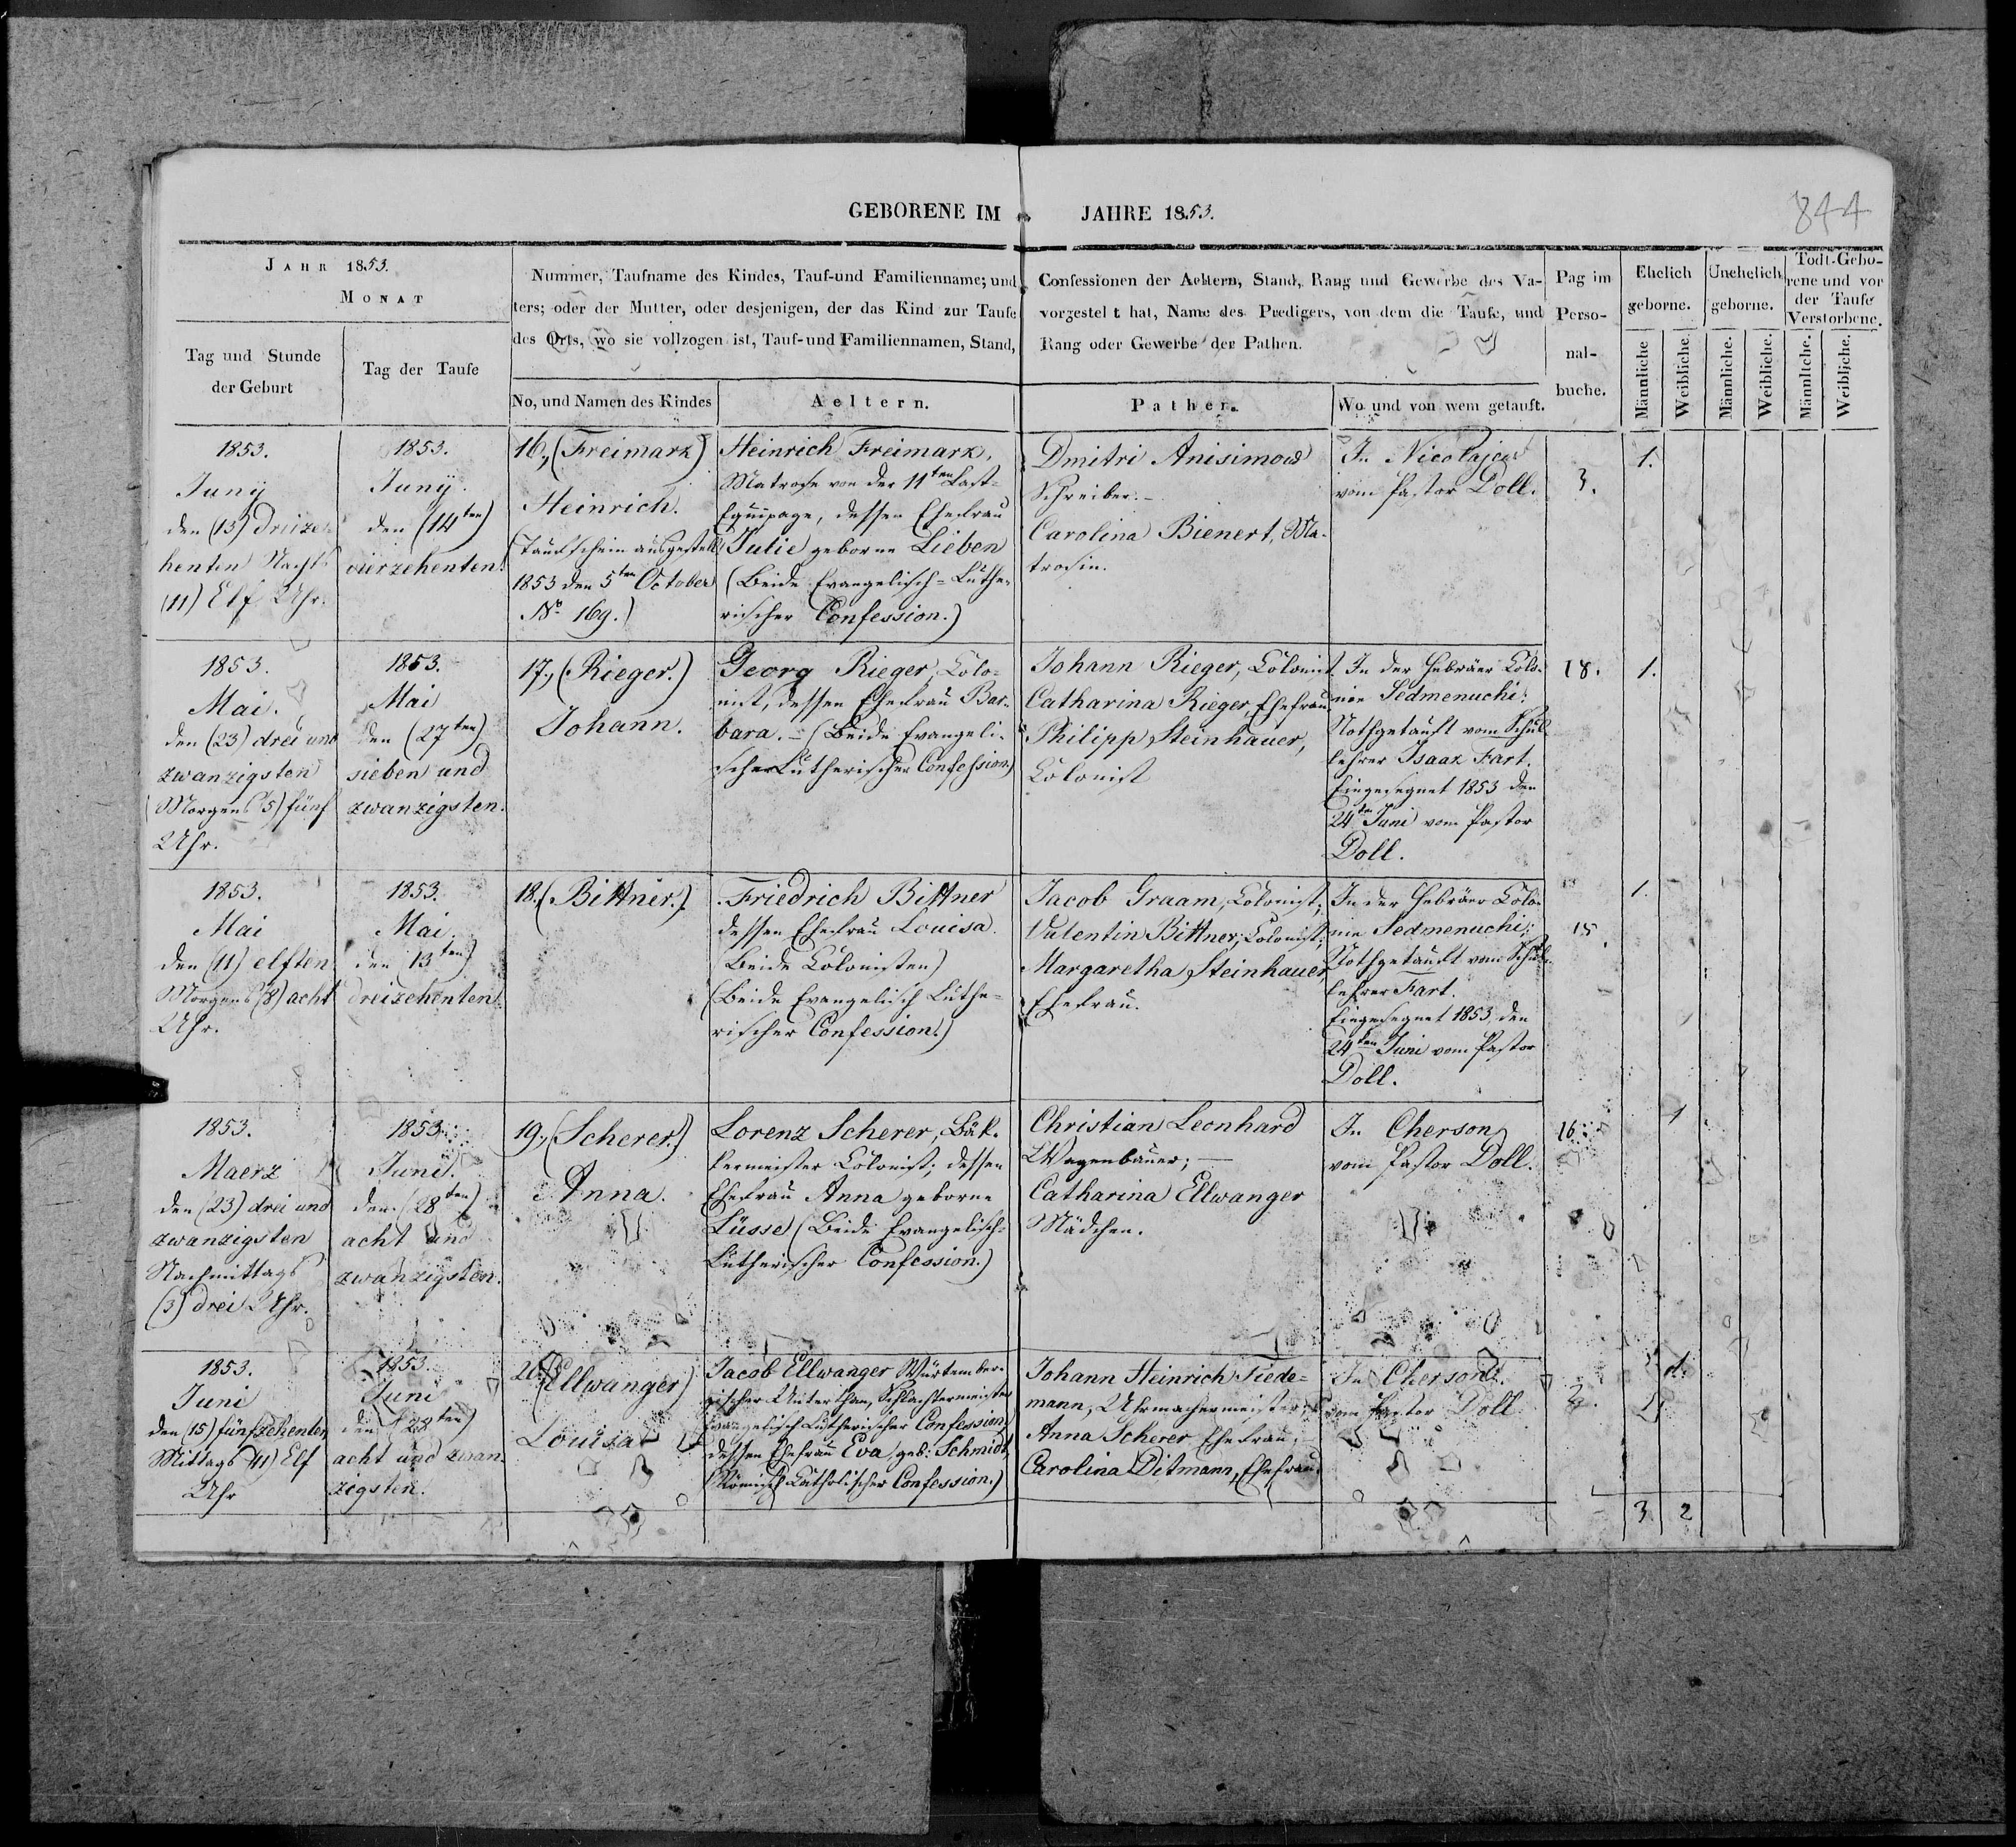 GEBORENE IM JAHRE 1853.
844
JAHR 1853.
MONAT
Tag und Stunde
der Geburt
Tag der Taufe
Nummer, Taufname des Kindes, Tauf-und Familienname; und
ters; oder der Mutter, oder desjenigen, der das Kind zur Taufe
des Orts, wo sie vollzogen ist, Tauf-und Familiennamen, Stand,
No, und Namen des Kindes
Aeltern.
Confessionen der Aeltern, Stand, Rang und Gewerbe des Va-
vorgestellt hat, Name des Predigers, von dem die Taufe, und
Rang oder Gewerbe der Pathen.
Pathen.
Wo und von wem getauft.
Pag im
Perso-
nal-
buche.
Ehelich
geborne.
Unehelich
geborne.
Todt-Gebo-
rene und vor
der Taufe
Verstorbene.
Männliche
Weibliche.
Männliche.
Weibliche.
Männliche.
Weibliche.
1853.
Juny
den (13) dreize-
henten Nachts
(11) Elf Uhr.
1853.
Juny.
den (14ten)
vierzehenten.
16, (Freimark)
Heinrich.
(Taufschein ausgestellt
1853 den 5ten October
No 169.)
Heinrich Freimark,
Matrose von der 11ten Last-
Equipage, dessen Ehefrau
Julie geborne Lieben
(Beide Evangelisch-Luthe-
rischer Confession.)
Dmitri Anisimow
Schreiber.-
Carolina Bienert, Ma-
trosin.
In Nicolajew
vom Pastor Doll.
3.
1.
1853.
Mai.
den (23) drei und
zwanzigsten
(Morgens 5) fünf
Uhr.
1853.
Mai
den (27ten)
sieben und
zwanzigsten.
17, (Rieger.)
Johann.
Georg Rieger, Colo-
nist, dessen Ehefrau Bar-
bara.- (Beide Evangeli-
scher Lutherischer Confession.)
Johann Rieger, Colonist
Catharina Rieger, Ehefrau
Philipp Steinhauer,
Colonist
In der Hebräer Colo-
nie Sedmenuchi:
Nothgetauft vom Schul-
lehrer Isaak Fart.
Eingesegnet 1853 den
24ten Juni vom Pastor
Doll.
18.
1.
1853.
Mai
den (11) elften
Morgens (8) acht
Uhr.
1853.
Mai.
den (13ten)
dreizehenten
18. (Bittner.)
Friedrich Bittner
dessen Ehefrau Louisa.
(Beide Colonisten)
(Beide Evangelisch Luthe-
rischer Confession.)
Jacob Graam, Colonist;
Valentin Bittner, Colonist;
Margaretha Steinhauer
Ehefrau.
In der Hebräer Colo-
nie Sedmenuchi:
Nothgetauft vom Schul-
lehrer Fart.
Eingesegnet 1853 den
24ten Juni vom Pastor
Doll.
15.
1.
1853.
Maerz
den (23) drei und
zwanzigsten
Nachmittags
(3) drei Uhr.
1853.
Juni.
den (28ten)
acht und
zwanzigsten.
19, (Scherer.)
Anna.
Lorenz Scherer, Bäk-
kermeister Colonist; dessen
Ehefrau Anna geborne
Lüsse (Beide Evangelisch-
Lutherischer Confession.)
Christian Leonhard
Wagenbauer; -
Catharina Ellwanger
Mädchen.
In Cherson
vom Pastor Doll.
16.
1
1853.
Juni
den (15) fünfzehenten
Mittags (11) Elf
Uhr
1853.
Juni
den (28ten)
acht und zwan-
zigsten.
20. (Ellwanger)
Louisa
Jacob Ellwanger Würtember-
gischer Unterthan, Schlachtermeister
Evangelisch Lutherischer Confession
dessen Ehefrau Eva, geb: Schmidt,
(Römisch Katholischer Confession.)
Johann Heinrich Tiede-
mann, Uhrmachermeister;
Anna Scherer Ehefrau;
Carolina Ditmann, Ehefrau.
In Cherson
vom Pastor Doll
1.
3. 2